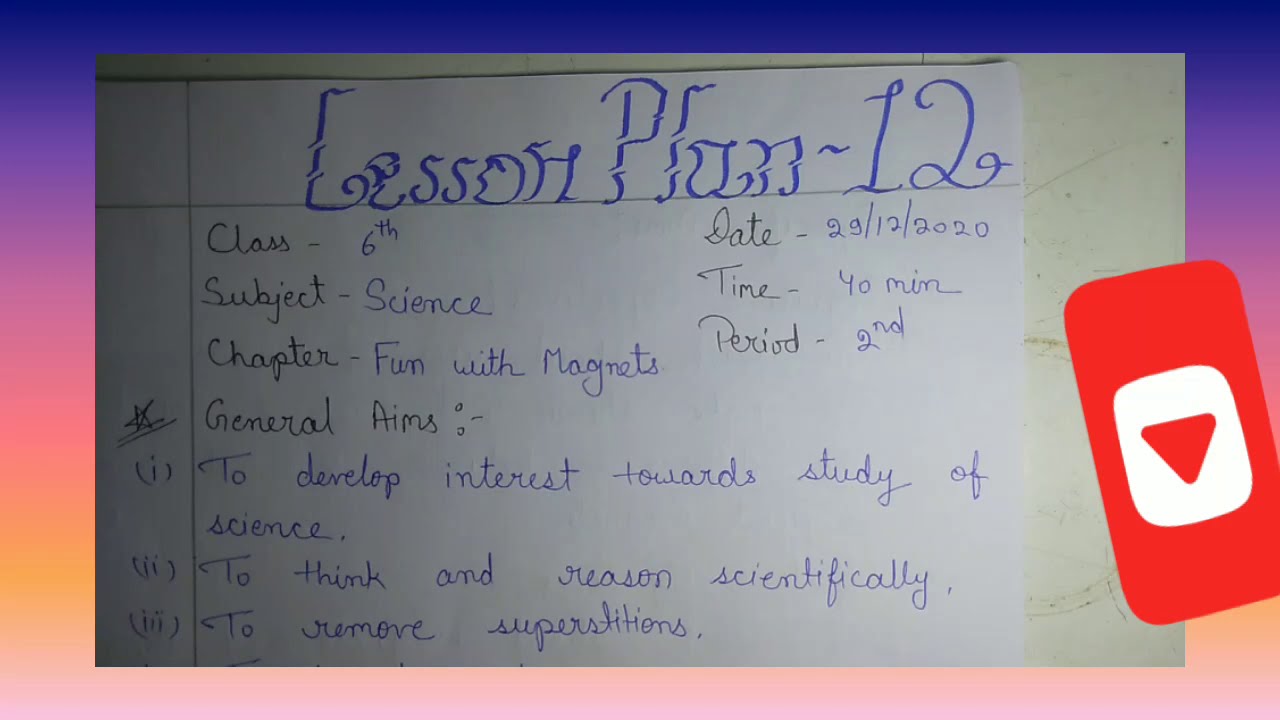 Lesson Plan-12
Class - 6th
Date - 29/12/2020
Subject - Science
Time - 40 min
Chapter - Fun with Magnets
Period - 2nd
General Aims :-
(i) To develop interest towards study of
science.
(ii) To think and reason scientifically.
(iii) To remove superstitions.
To